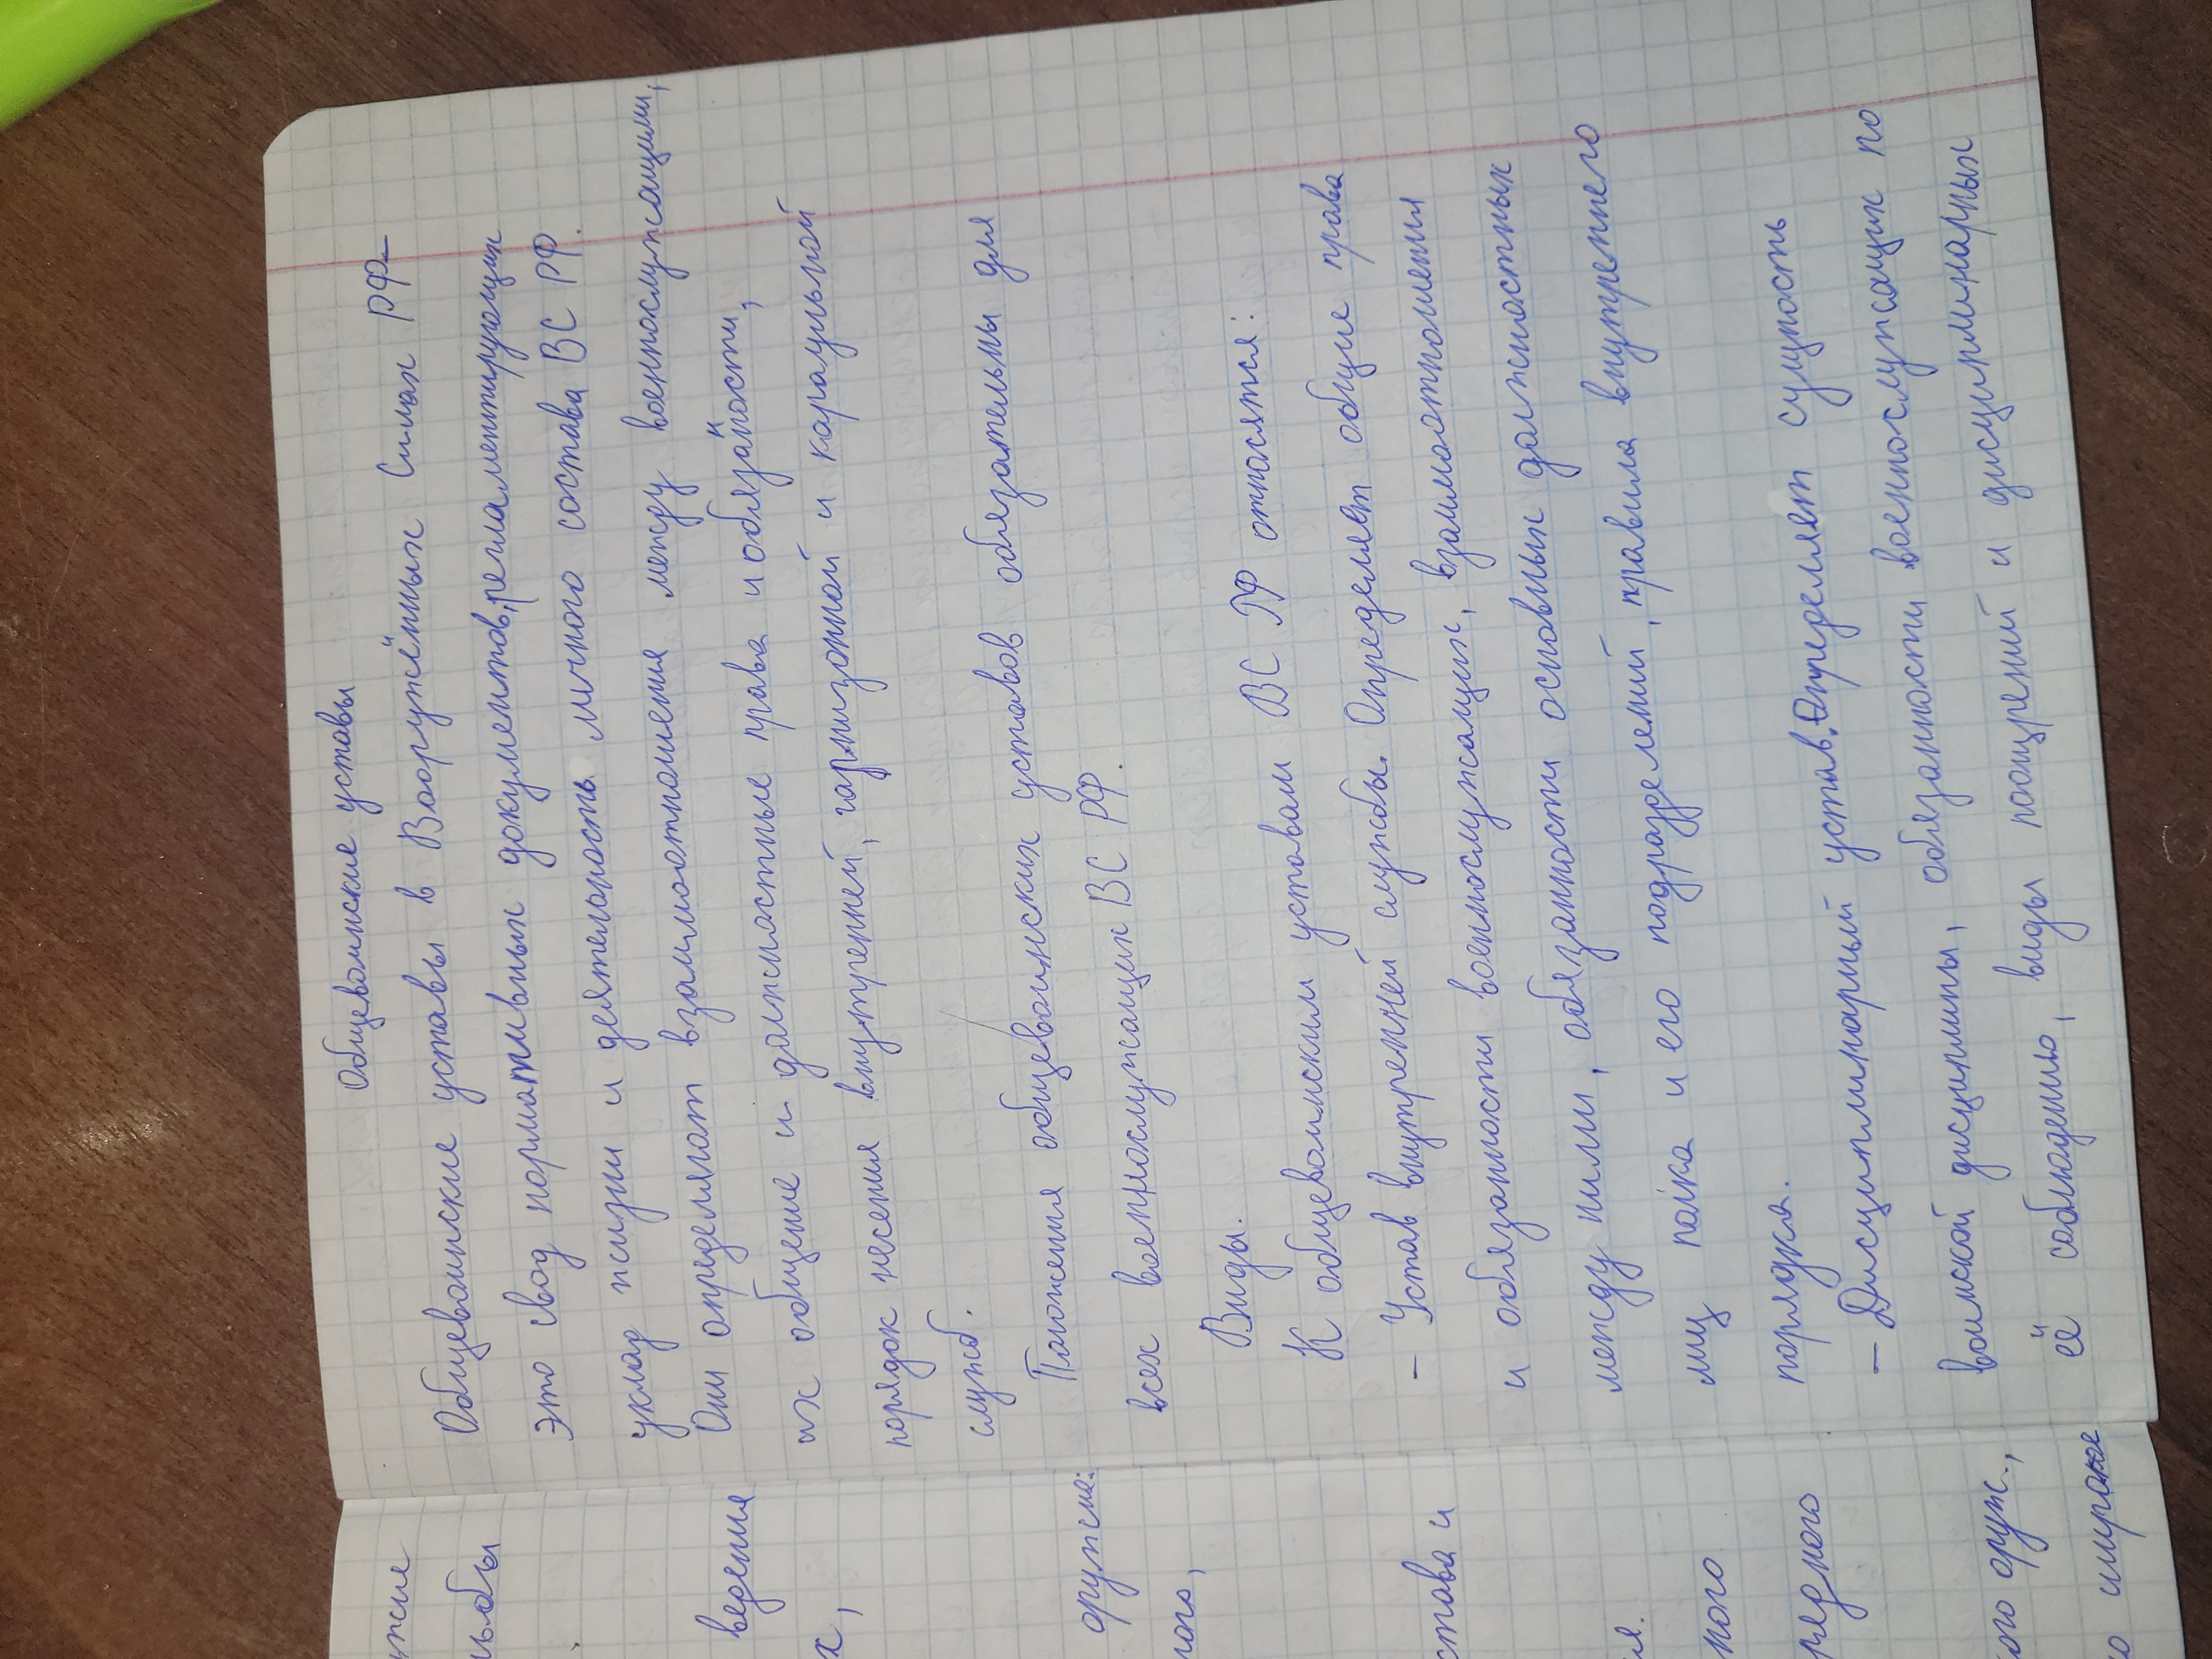 Общевоинские уставы
Общевоинские уставы в Вооружённых Силах РФ –
это свод нормативных документов, регламентирующих
уклад жизни и деятельность личного состава ВС РФ.
Они определяют взаимоотношения между военнослужащими,
их общие и должностные права и обязанности,
порядок несения внутренней, гарнизонной и караульной
служб.
Положения общевоинских уставов обязательны для
всех военнослужащих ВС РФ.
Виды.
К общевоинским уставам ВС РФ относятся:
– Устав внутренней службы. Определяет общие права
и обязанности военнослужащих, взаимоотношения
между ними, обязанности основных должностных
лиц полка и его подразделений, правила внутреннего
порядка.
– Дисциплинарный устав. Определяет сущность
воинской дисциплины, обязанности военнослужащих по
её соблюдению, виды поощрений и дисциплинарных
жие
льбы
ведения
х,
оружие:
ного,
става и
ия.
ного
рядного
ого оруж.,